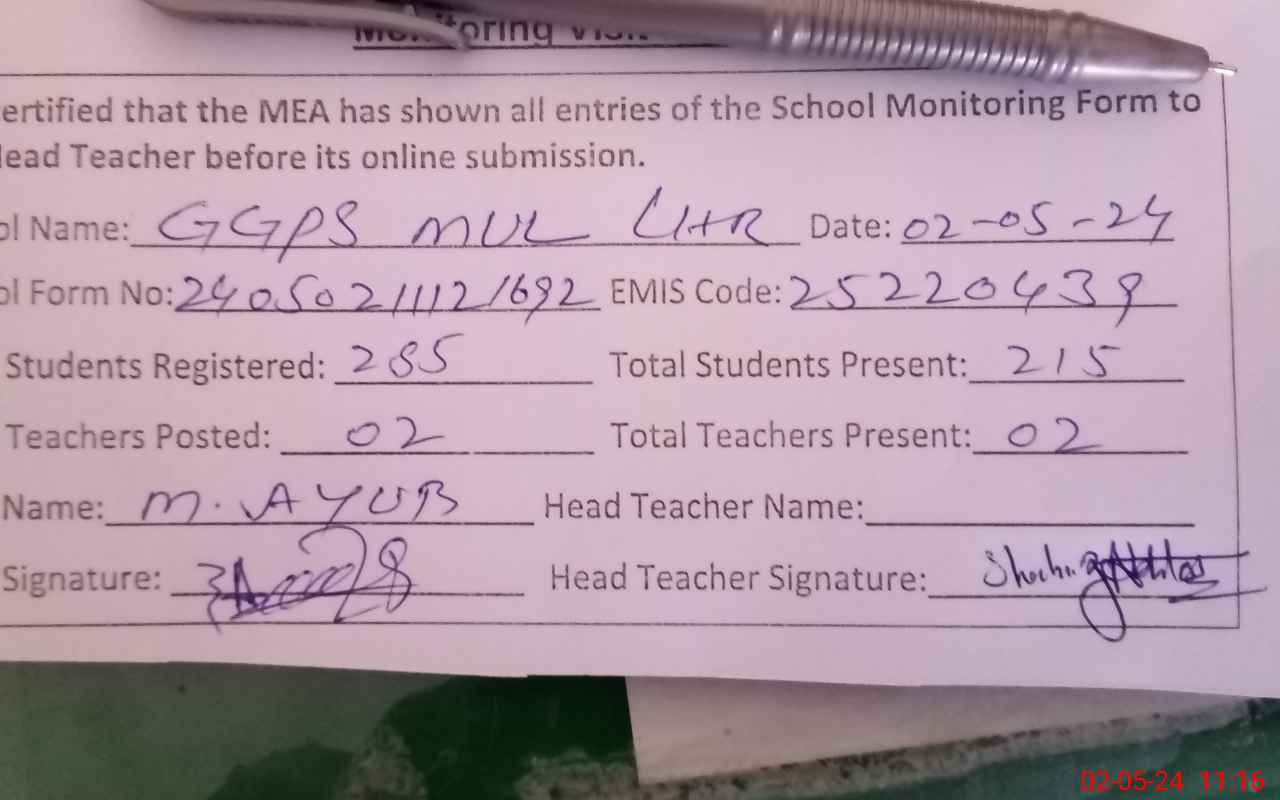 Monitoring Visit
ertified that the MEA has shown all entries of the School Monitoring Form to
lead Teacher before its online submission.
ol Name: GGPS MUL LHR Date: 02-05-24
ol Form No: 24050211121692 EMIS Code: 25220439
Students Registered: 285 Total Students Present: 215
Teachers Posted: 02 Total Teachers Present: 02
Name: M. AYUB Head Teacher Name:
Signature: Head Teacher Signature:
02-05-24 11:16